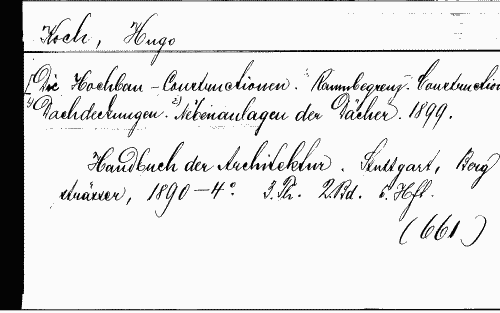 Koch, Hugo
Die Hochbau-Constructionen. Raumbegrenz. Construction
Dachdeckungen. 2) Nebenanlagen der Dächer. 1899.
Handbuch der Architektur. Stuttgart, Berg
strässer, 1890-4°. 3. Th. 2. Bd. 5. Hft.
(661.)